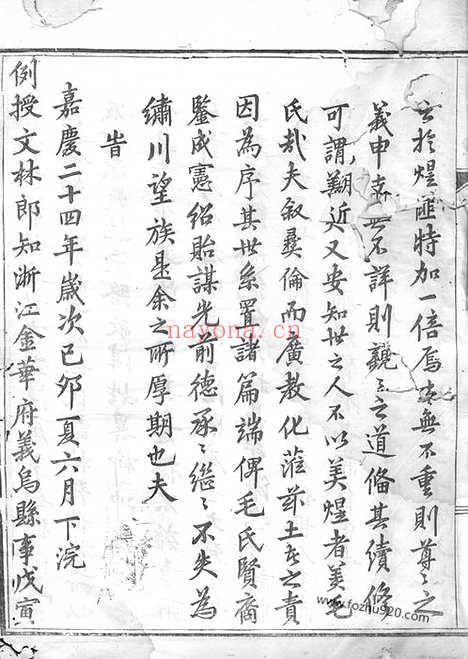 公於煜匪特加一倍焉本無不重則尊尊之
義申支無不詳則親親之道偹其續修
可謂勤近又安知世之人不以美煜者美毛
氏㢤夫叙彛倫而廣教化蒞茲土者之責
因為序其世系置諸篇端俾毛氏賢裔
鑒成憲紹貽謀光前德承〻繼〻不失為
繡川望族是余之所厚期也夫
旹
嘉慶二十四年嵗次己夘夏六月下浣
例授文林郎知浙江金華府義烏縣事戊寅
nayona.cn
www.fozhu920.com